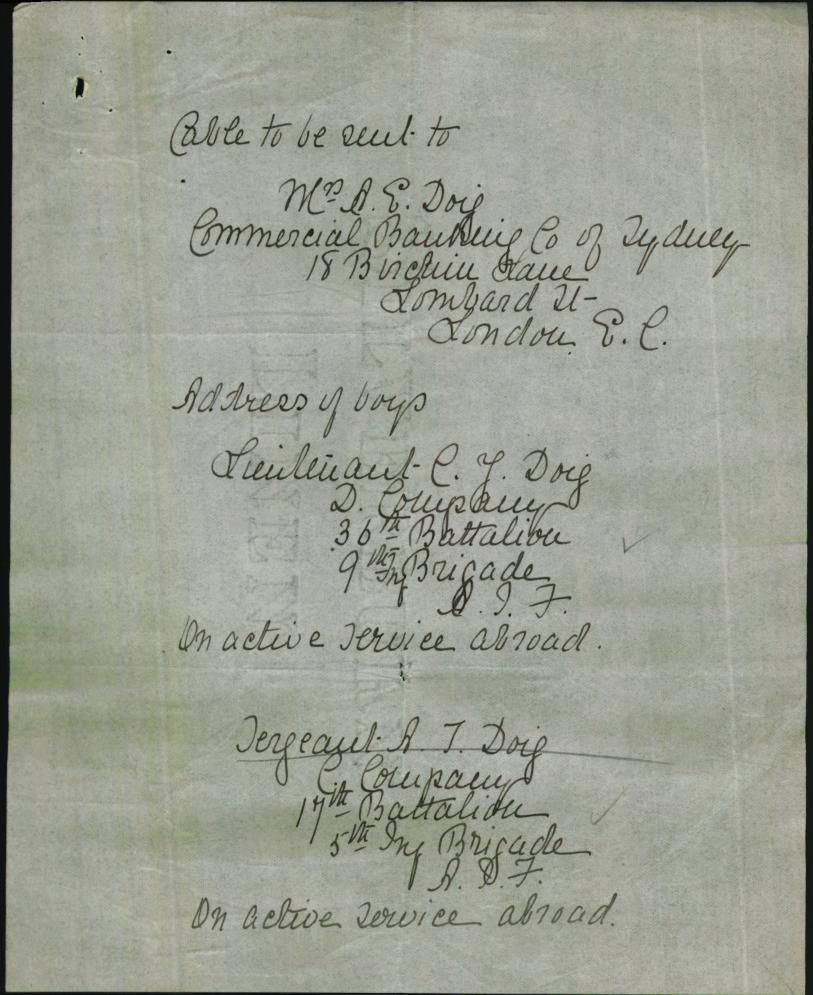 Cable to be sent to
Mrs A. E. Doig
Commercial Banking Co of Sydney
18 Birchin Lane
Lombard St-
London E. C.
Address of boys
Lieutenant C. Y. Doig
D. Company
36th Battalion
9th Inf Brigade
A. I. F.
On active service abroad.
Sergeant A. T. Doig
C Company
17th Battalion
5th Inf Brigade
A. I. F.
On active service abroad.